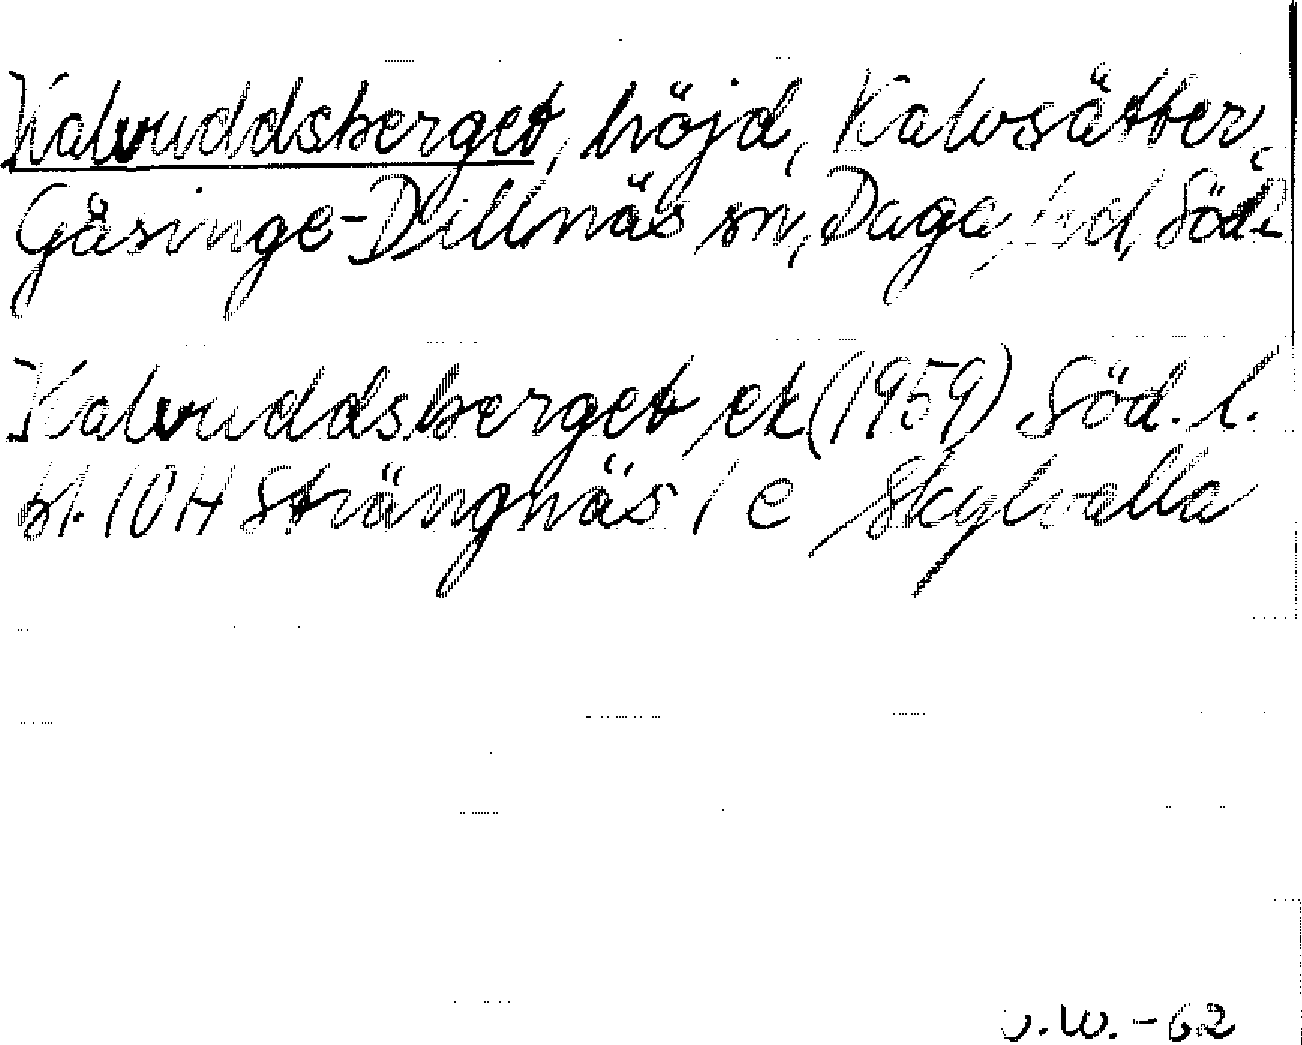 Kalvuddsberget, höjd, Kalvsätter,
Gåsinge-Dillnäs sn, Daga hd, Söd.
Kalvuddsberget ek (1959) Söd. l.
bl. 10H Strängnäs 1 c Skylvalla
v.W. - 62